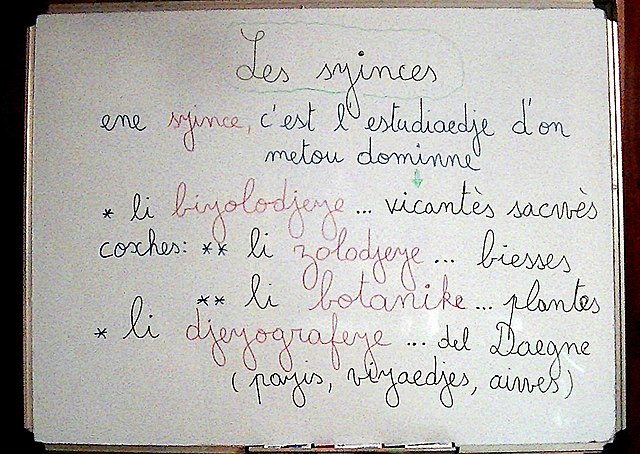 Les syinces
ene syince, c'est l'estudiaedje d'on
metou dominne
* li biyolodjeye ... vicantès sacwès
coxhes: ** li zolodjeye ... biesses
** li botanike ... plantes
* li djeyografeye ... del Daegne
(payis, viyaedjes, aiwes)